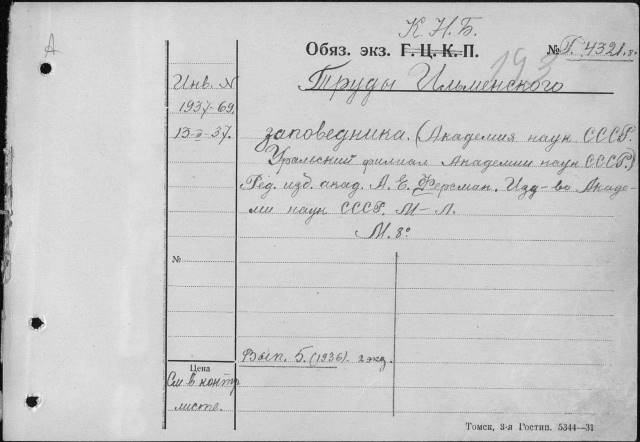 К. Н. Б.
А
Обяз. экз. Г. Ц. К. П. № Г. 4321.8°
193
Инв. N
1937-69.
13-I-37.
Труды Ильменского
заповедника. (Академия наук СССР.
Уральский филиал Академии наук СССР.)
Ред. изд. акад. А. Е. Ферсман. Изд-во Акаде-
мии наук СССР. М-Л.
М. 8°
№
Вып. 5. (1936). 2 экз.
Цена
См в контр
листе.
Томск, 3-я Гостип. 5344—31